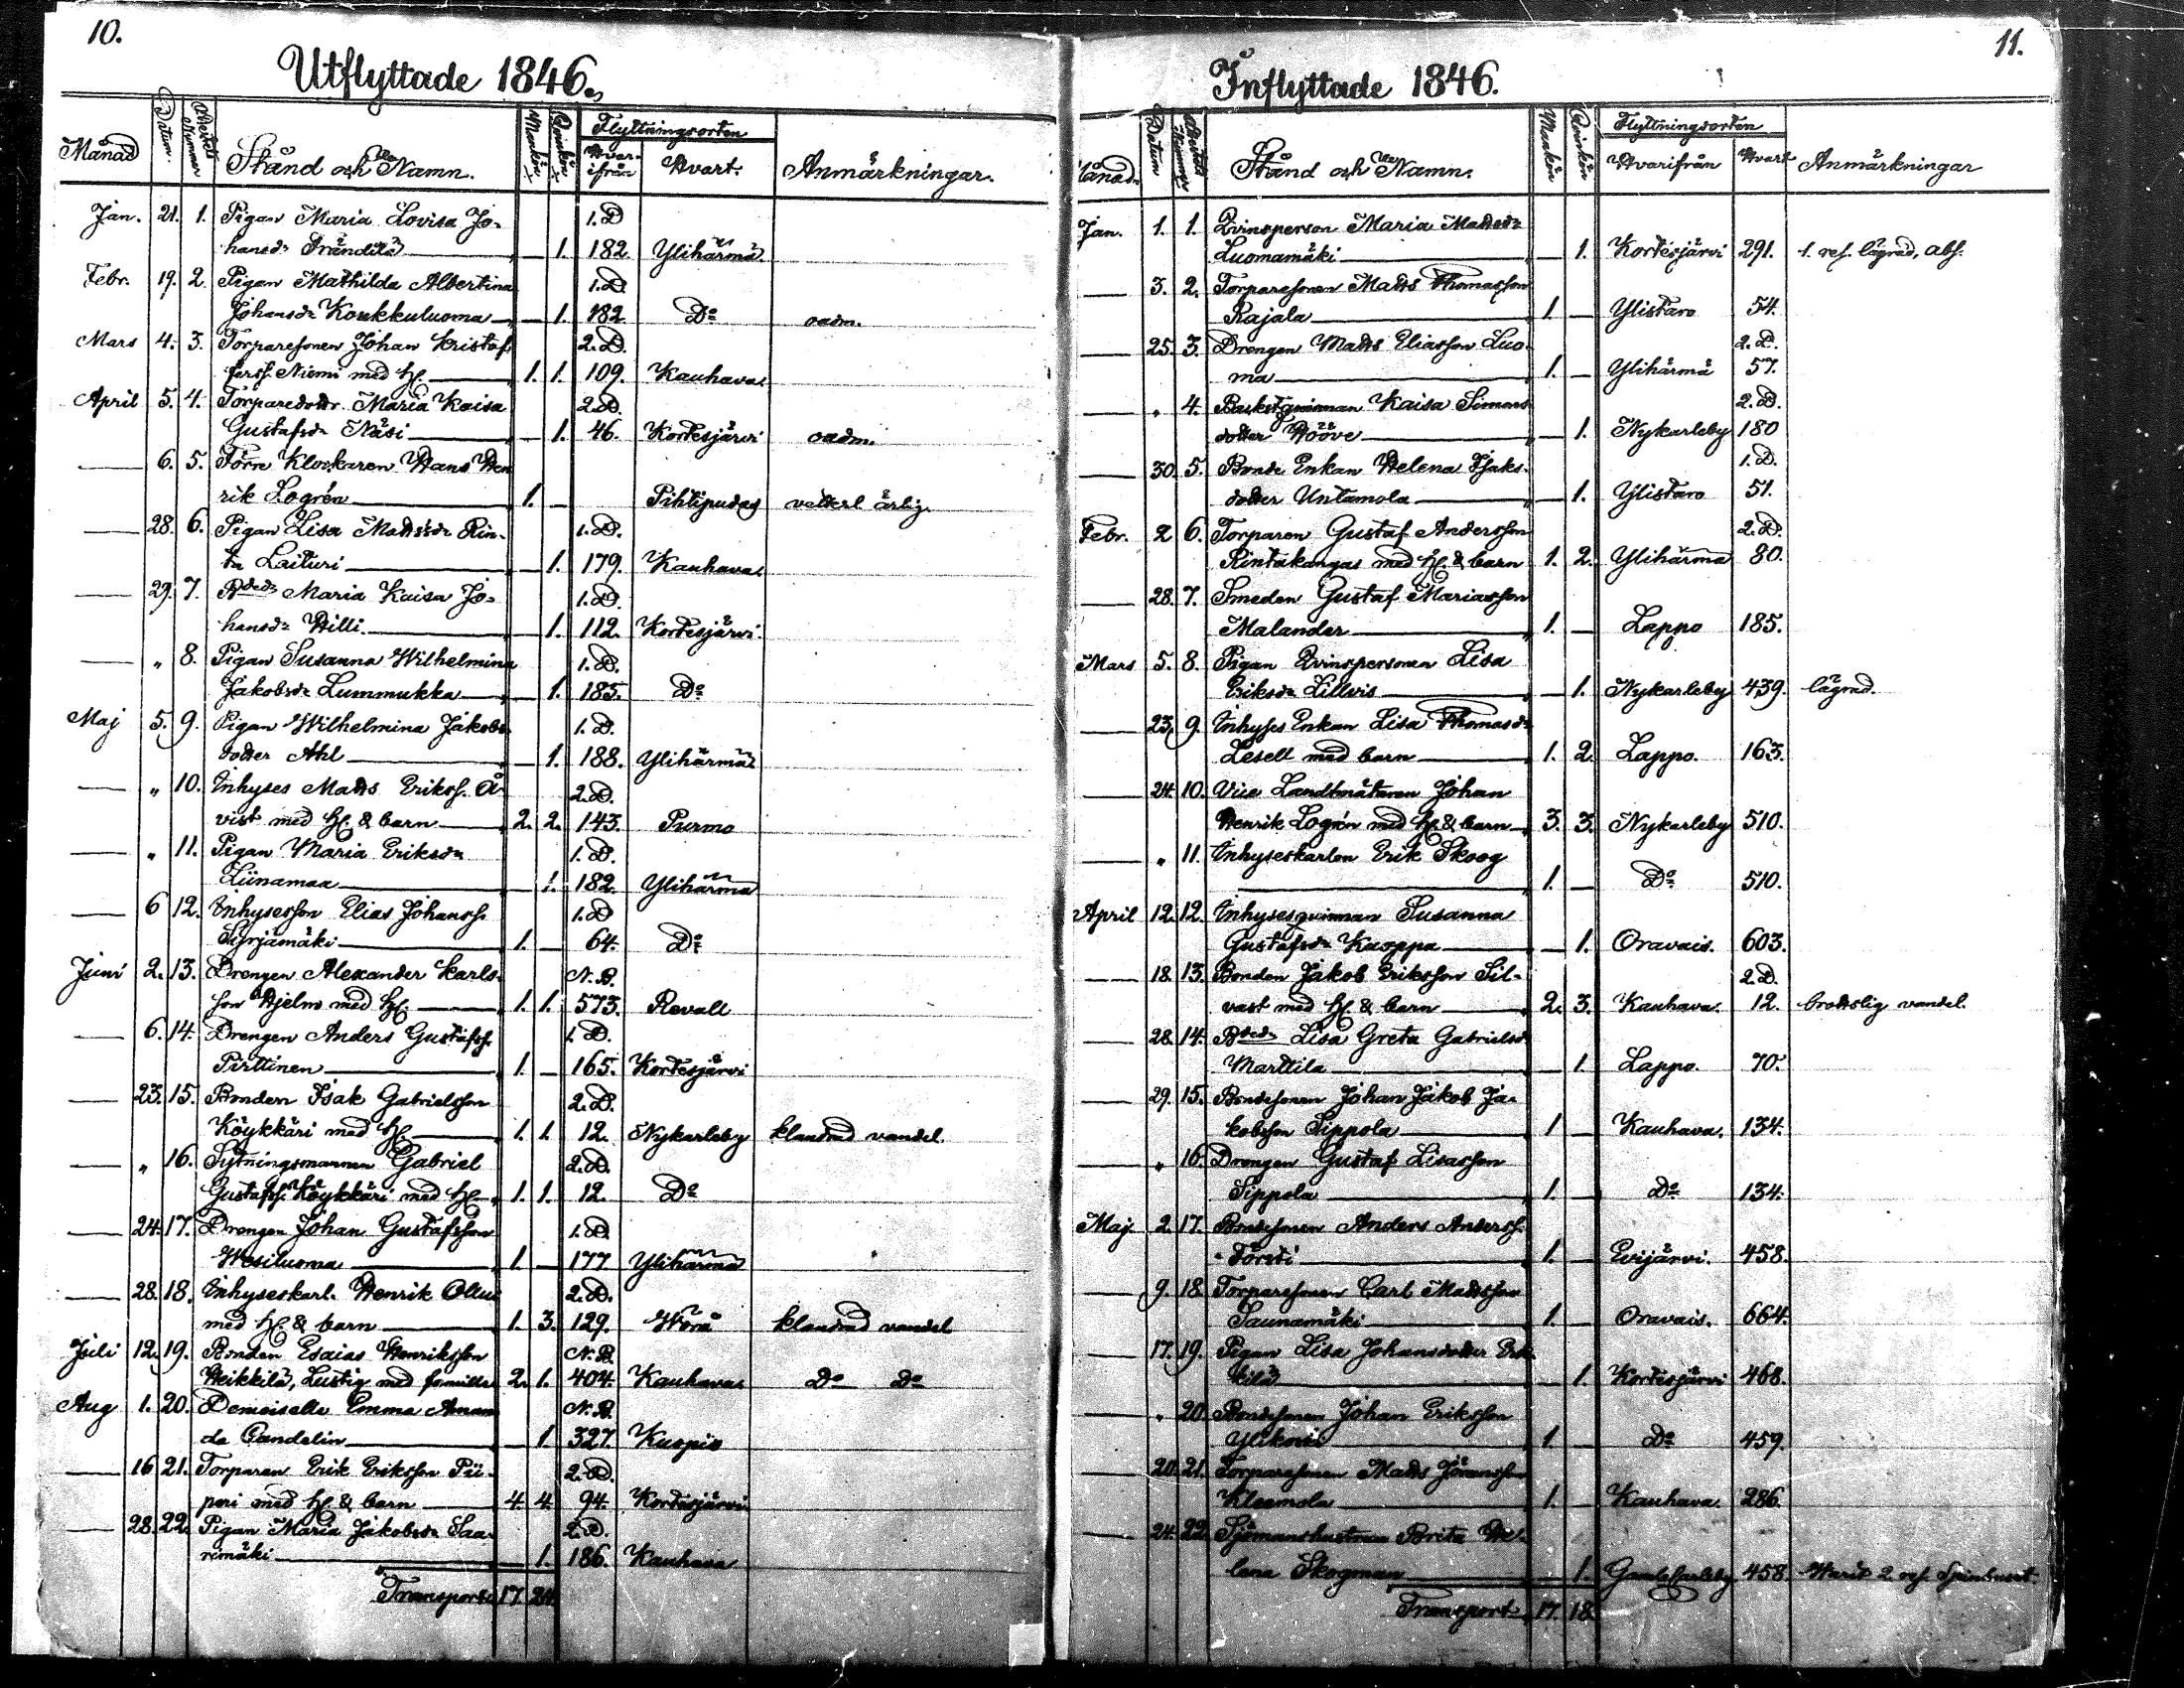 10.
Utflyttade 1846.
Månad Datum. Attestets Nummer Stånd och Namn. Mankön Qvinkön Flyttningsorten Anmärkningar.
Hvarifrån Hvart.
Jan. 21. 1. Pigan Maria Lovisa Jo- 1.D
hansdr 1. 182. Ylihärmä.
Febr. 19. 2. Pigan Mathilda Albertina 1.D.
Johansdr Koukkuluoma — 1. 182 Do oadm.
Mars 4. 3. Torparesonen Johan Kristof- 2.D.
ferss. Niemi med H. 1. 1. 109. Kauhava.
April 5. 4. Torparedottr. Maria Kaisa 2.D.
Gustafsdr Näsi — 1. 46. Kortesjärvi oadm.
— 6. 5. Förre Klockaren Hans Hen
rik Logrén 1. — Pihtipudas vitterl ärlig
— 28. 6. Pigan Lisa Mattsdr Rin- 1.D.
ta Laituri — 1. 179. Kauhava.
— 29. 7. Bdedr Maria Kaisa Jo- 1.D.
hansdr Hilli. — 1. 112. Kortesjärvi.
— " 8. Pigan Susanna Wilhelmina 1.D.
Jakobsdr Lummukka — 1. 185. Do
Maj 5. 9. Pigan Wilhelmina Jakobs- 1.D.
dotter Ahl — 1. 188. Ylihärmä
— " 10. Inhyses Matts Erikss. Å- 2.D.
vist med H. & barn 2. 2. 143. Purmo
— " 11. Pigan Maria Eriksdr 1.D.
Liinamaa — 1. 182. Ylihärmä
— 6 12. Inhysesson Elias Johanss. 1.D
Syrjämäki 1. — 64. Do
Juni 2. 13. Drengen Alexander Karls- N.B.
son Hjelm med H. 1. 1. 573. Revall
— 6. 14. Drengen Anders Gustafss. 1.D.
Pirttinen 1. — 165. Kortesjärvi
— 23. 15. Bonden Isak Gabrielsson 2.D.
Köykkäri med H. 1. 1. 12. Nykarleby klandrad vandel.
— " 16. Sytningsmannen Gabriel 2.D.
Gustafss. Köykkäri med H. 1. 1. 12. Do
— 24. 17. Drengen Johan Gustafsson 1.D.
Wesiluoma 1 — 177 Ylihärmä
— 28. 18. Inhyseskarl. Henrik Ollus 2.D.
med H. & barn 1. 3. 129. Wörå klandrad vandel
Juli 12. 19. Bonden Esaias Henriksson N.B.
Heikkilä, Lustig med familie 2. 1. 404. Kauhava Do Do
Aug 1. 20. Demoiselle Emma Aman N.B.
da Gandelin 1 327. Kuopio
— 16 21. Torparen Erik Eriksson Pii- 2.D.
pari med H. & barn 4. 4. 94. Kortesjärvi
— 28. 22. Pigan Maria Jakobsdr Saa- 2.D.
rimäki — 1. 186. Kauhava
Transport 17. 24.
11.
Inflyttade 1846.
Månad. Datum Attestets Nummer Stånd och Namn. Mankön Qvinkön Flyttningsorten Anmärkningar
Hvarifrån Hvart
Jan. 1. 1. Qvinsperson Maria Mattsdr
Luomamäki — 1. Kortesjärvi 291. 1. res. lägrad, abs.
— 3. 2. Torparesonen Matts Thomasson
Rajala 1. — Ylistaro 54.
— 25. 3. Drengen Matts Eliasson Luo- 2.D.
ma 1. — Ylihärmä 57.
— " 4. Kaisa Simons 2.D.
dotter Hööve — 1. Nykarleby 180
— 30. 5. Bonde Enkan Helena Isaks- 1.D.
dotter Untamola — 1. Ylistaro 51.
Febr. 2 6. Torparen Gustaf Andersson 2.D.
Rintakangas med H. & barn 1. 2. Ylihärmä 80.
— 28. 7. Smeden Gustaf Mariasson
Malander 1. — Lappo 185.
Mars 5. 8. Pigan Qvinspersonen Lisa
Eriksdr Lillvis — 1. Nykarleby 439. lägrad.
— 23. 9. Inhyses Enkan Lisa Thomasdr
Lesell med barn 1. 2. Lappo. 163.
— 24. 10. Vice Landtmätaren Johan
Henrik Logrén med H. & barn 3. 3. Nykarleby 510.
— " 11. Inhyseskarlen Erik Skoog
1. — Do 510.
April 12. 12. Inhysesqvinnan Susanna
Gustafsdr Kaoppa — 1. Oravais. 603.
— 18. 13. Bonden Jakob Eriksson Sil- 2.D.
vast med H. & barn 2. 3. Kauhava. 12. brottslig vandel.
— 28. 14. Bdedr Lisa Greta Gabrielsdr
Marttila — 1. Lappo. 70.
— 29. 15. Bondesonen Johan Jakob Ja-
kobsson Sippola 1 — Kauhava. 134.
— " 16. Drengen Gustaf Lisasson
Sippola 1. — Do 134.
Maj 2. 17. Bondesonen Anders Anderss.
Försti 1. — Evijärvi. 458.
— 9. 18. Torparesonen Carl Mattsson
Saunamäki 1. — Oravais. 664.
— 17. 19. Pigan Lisa Johansdotter Erk-
kilä — 1. Kortesjärvi 468.
— " 20. Bondesonen Johan Eriksson
1. — Do 459.
— 20. 21. Torparesonen Matts Johansson
Kleemola 1. — Kauhava. 286.
— 24. 22. Sjömanshustrun Brita He-
lena Skogman 1. Gamlekarleby 458 Warit 2. res. Spinhuset.
Transport 17. 18.